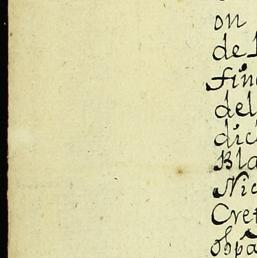 on
de
fin
del
dic
Bla
Nic
Cret
obpa